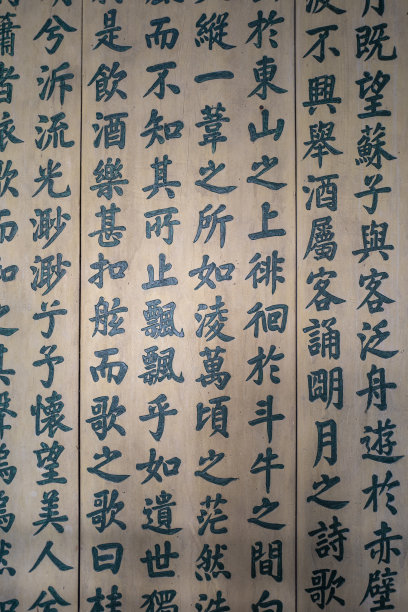 月既望蘇子與客泛舟遊於赤壁
波不興舉酒屬客誦明月之詩歌
於東山之上徘徊於斗牛之間白
縱一葦之所如淩萬頃之茫然浩
風而不知其所止飄飄乎如遺世獨
是飲酒樂甚扣舷而歌之歌曰桂
兮泝流光渺渺兮予懷望美人兮
簫者依歌而和之其聲嗚嗚然